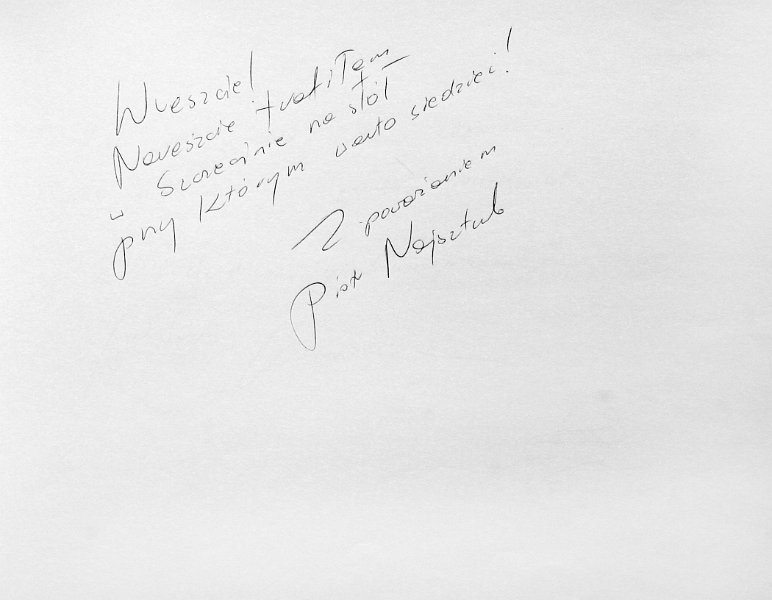 Wreszcie!
Nareszcie trafiłem
w Szczecinie na stół
przy którym warto siedzieć!
Z poważaniem
Piotr Najsztub